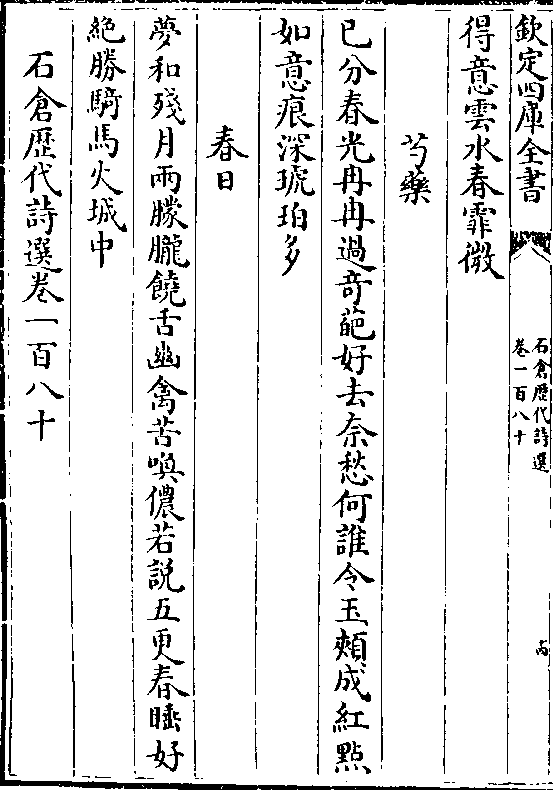 欽定四庫全書
石倉歴代詩選
卷一百八十
得意雲水春霏微
芍藥
已分春光冉冉過奇葩好去奈愁何誰令玉頰成紅點
如意痕深琥珀多
春日
夢和殘月兩朦朧饒舌幽禽苦喚儂若說五更春睡好
絶勝騎馬火城中
石倉歴代詩選卷一百八十